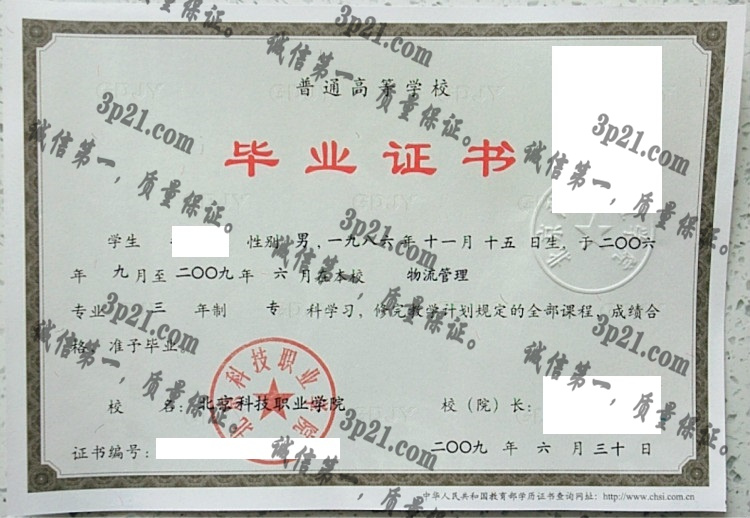 普通高等学校
毕业证书
学生 性别 男，一九八六年 十一月 十五 日生，于 二〇〇六
年 九 月至 二〇〇九 年 六 月在本校 物流管理
专业 三 年制 专 科学习，修完教学计划规定的全部课程，成绩合
格，准予毕业。
校 名：北京科技职业学院 校（院）长：
证书编号： 二〇〇九 年 六 月 三十 日
中华人民共和国教育部学历证书查询网址：http://www.chsi.com.cn
3p21.com
诚信第一，质量保证。
3p21.com
诚信第一，质量保证。
3p21.com
诚信第一，质量保证。
3p21.com
诚信第一，质量保证。
3p21.com
诚信第一，质量保证。
3p21.com
诚信第一，质量保证。
3p21.com
诚信第一，质量保证。
3p21.com
诚信第一，质量保证。